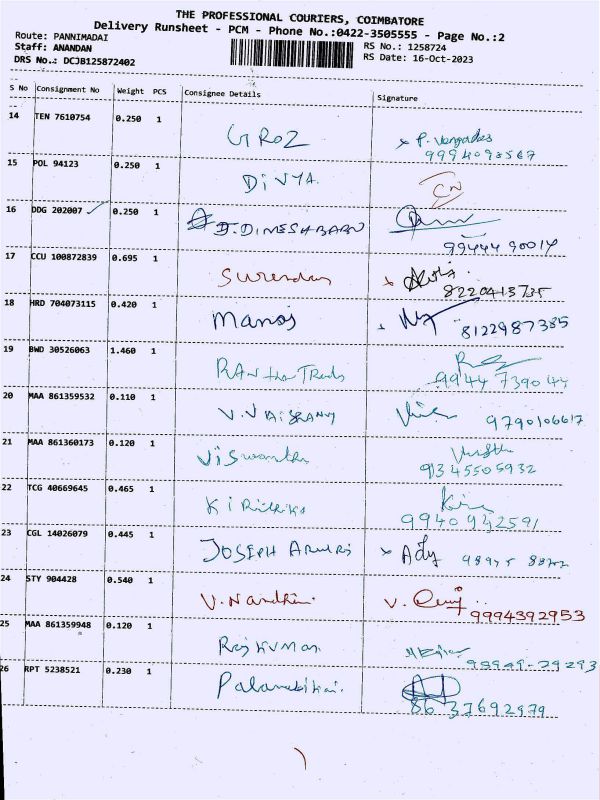 THE PROFESSIONAL COURIERS, COIMBATORE
Delivery Runsheet - PCM - Phone No.:0422-3505555 - Page No.:2
Route: PANNIMADAI
RS No.: 1258724
Staff: ANANDAN
RS Date: 16-Oct-2023
DRS No.: DCJB125872402
S No Consignment No Weight PCS Consignee Details Signature
14 TEN 7610754 0.250 1 GROZ P. Vengades
9994098567
15 POL 94123 0.250 1 DIVYA. CN
16 DDG 202007 0.250 1 J.DINESHBABU
9944490014
17 CCU 100872839 0.695 1 Surendar
8220413735
18 HRD 704073115 0.420 1 Manoj 8122987385
19 BWD 30526063 1.460 1
9944 739044
20 MAA 861359532 0.110 1 9790106617
21 MAA 861360173 0.120 1 Viswanthan
9134550 5932
22 TCG 40669645 0.465 1 Kiruthika
9940942591
23 CGL 14026079 0.445 1 JOSEPH
24 STY 904428 0.540 1 V.Nandhini V.
9994392953
25 MAA 861359948 0.120 1 Rajkumar
99949-29293
26 RPT 5238521 0.230 1
8637692979